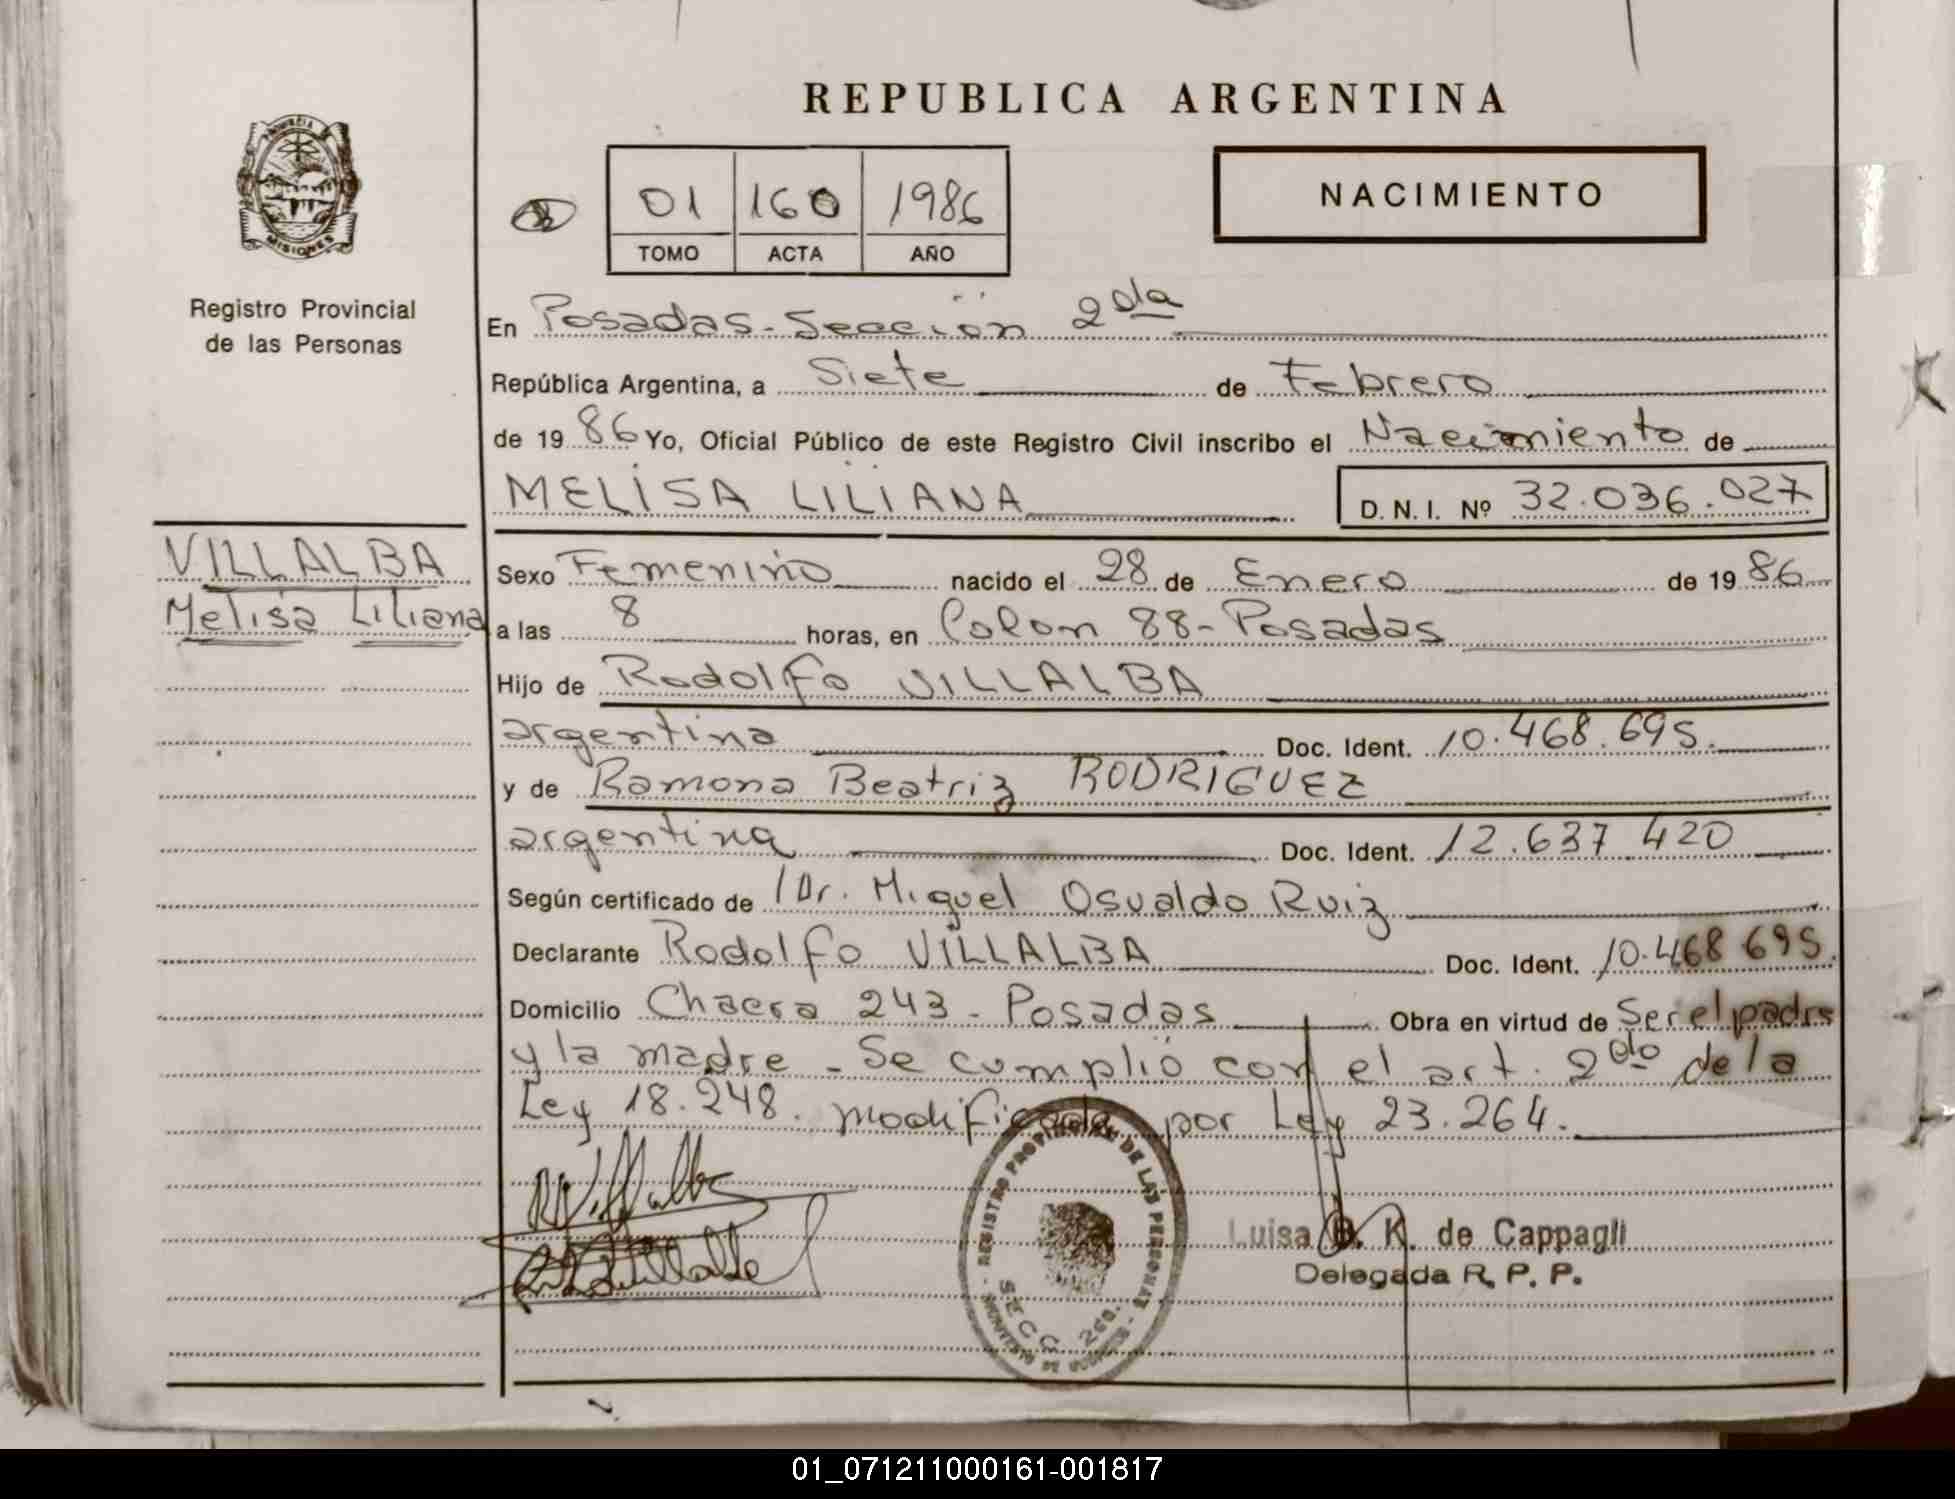 REPUBLICA ARGENTINA
PROVINCIA DE
MISIONES
Registro Provincial
de las Personas
01 160 1986
TOMO ACTA AÑO
NACIMIENTO
En Posadas-Sección 2da
República Argentina, a Siete de Febrero
de 1986 Yo, Oficial Público de este Registro Civil inscribo el Nacimiento de
MELISA LILIANA D. N. I. Nº 32.036.027
VILLALBA
Melisa Liliana
Sexo Femenino nacido el 28 de Enero de 1986
a las 8 horas, en Colon 88-Posadas
Hijo de Rodolfo VILLALBA
argentina Doc. Ident. 10.468.695.
y de Ramona Beatriz RODRIGUEZ
argentina Doc. Ident. 12.637 420
Según certificado de Dr. Miguel Osvaldo Ruiz
Declarante Rodolfo VILLALBA Doc. Ident. 10.468 695.
Domicilio Chacra 243 - Posadas Obra en virtud de Ser el padre
y la madre - Se cumplió con el art. 2do de la
Ley 18.248. modificada por Ley 23.264.
R Villalba
REGISTRO PROVINCIAL DE LAS PERSONAS
SECC. 2da.
Luisa B. K. de Cappagli
Delegada R. P. P.
01_071211000161-001817